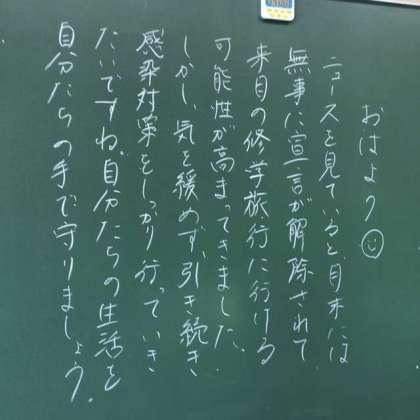 おはよう☺
ニュースを見ていると、月末には
無事に宣言が解除されて、
来月の修学旅行に行ける
可能性が高まってきました。
しかし、気を緩めず、引き続き
感染対策をしっかり行っていき
たいですね。自分たちの生活を
自分たちの手で守りましょう。